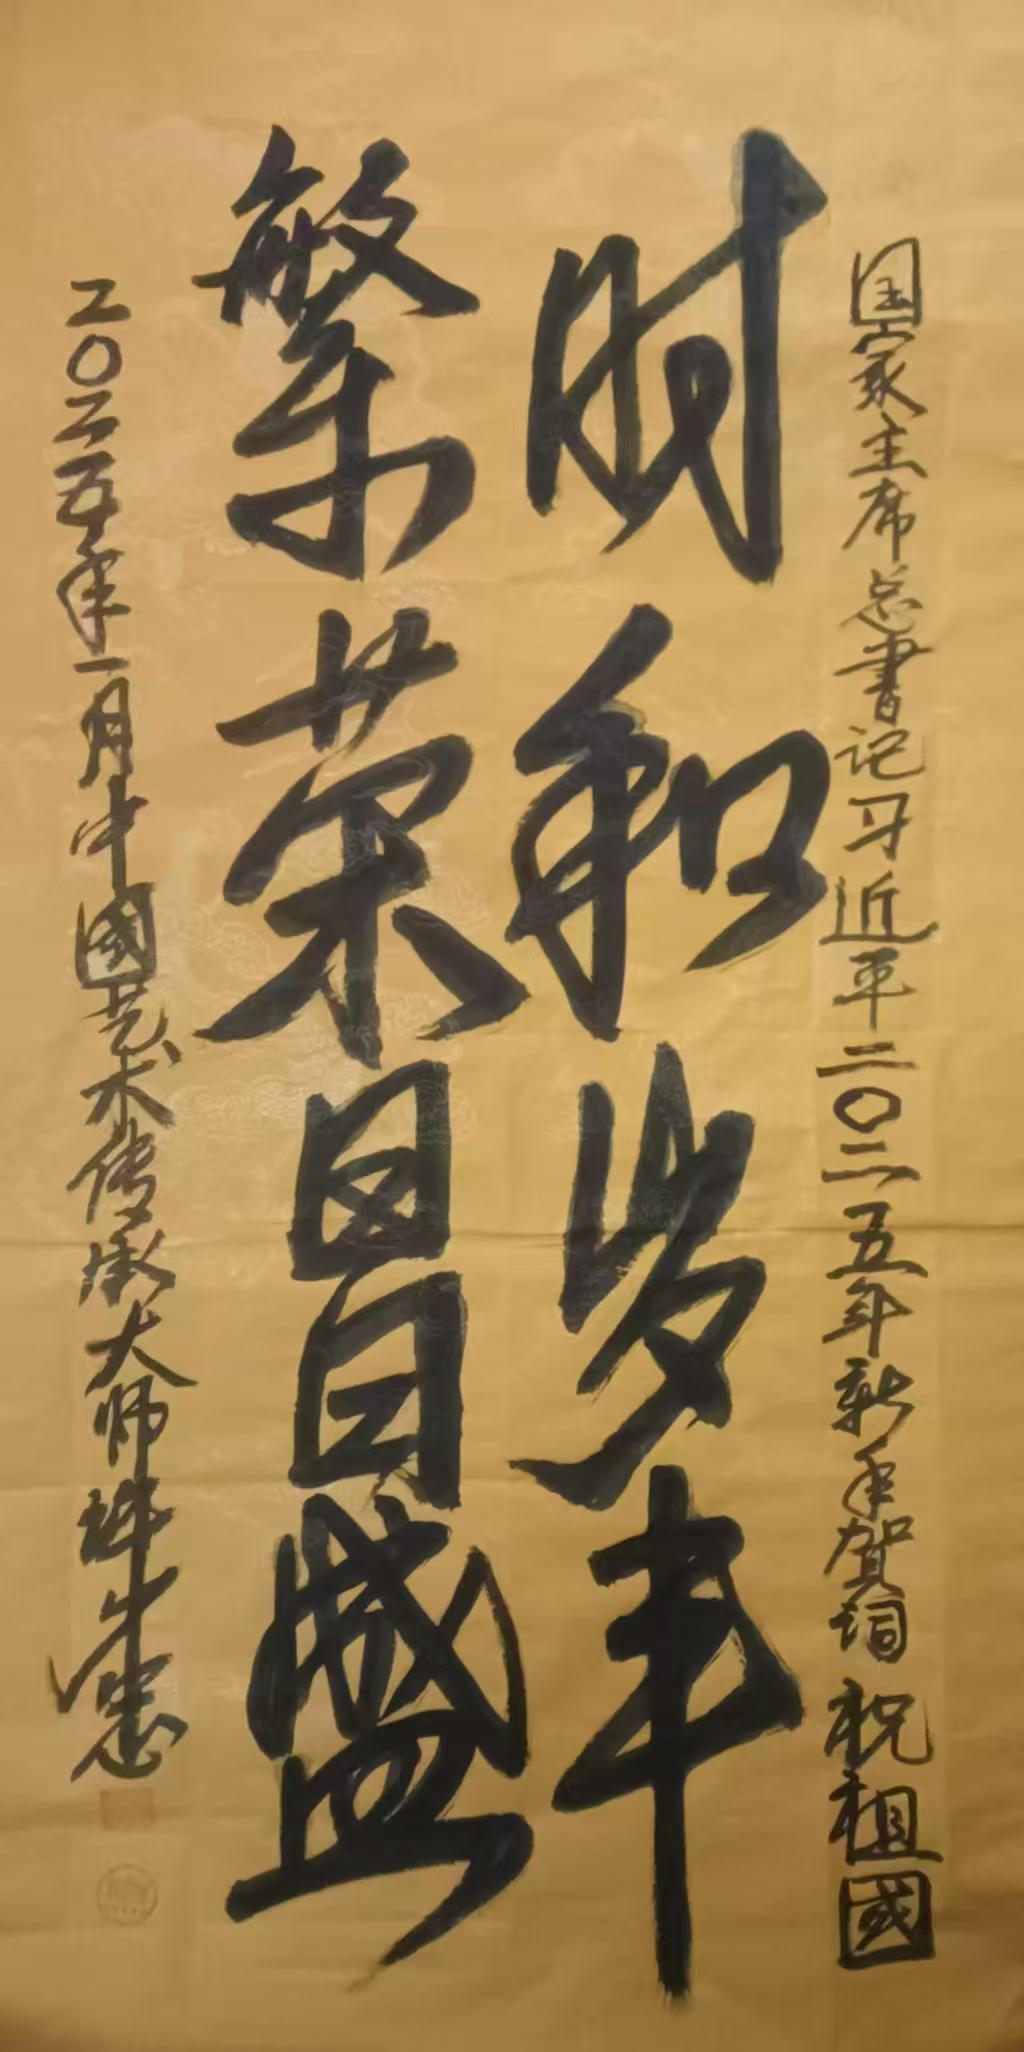 国家主席总书记习近平二〇二五年新年贺词 祝祖國
时和岁丰
繁荣昌盛
二〇二五年一月中國艺术传承大师许生忠